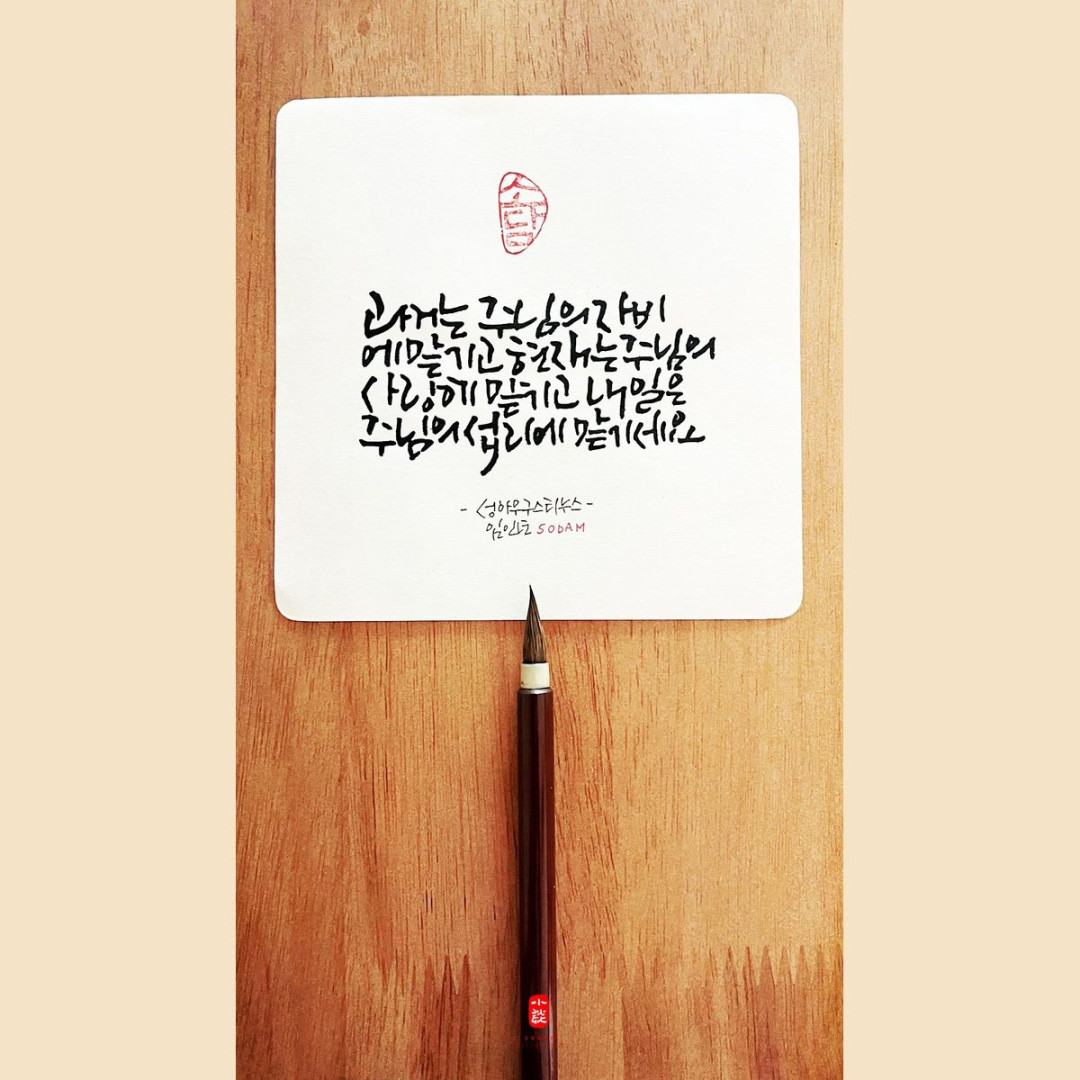 소담
과거는 주님의 자비
에 맡기고 현재는 주님의
사랑에 맡기고 내일은
주님의 섭리에 맡기세요
- 성아우구스티누스 -
임인년 SODAM